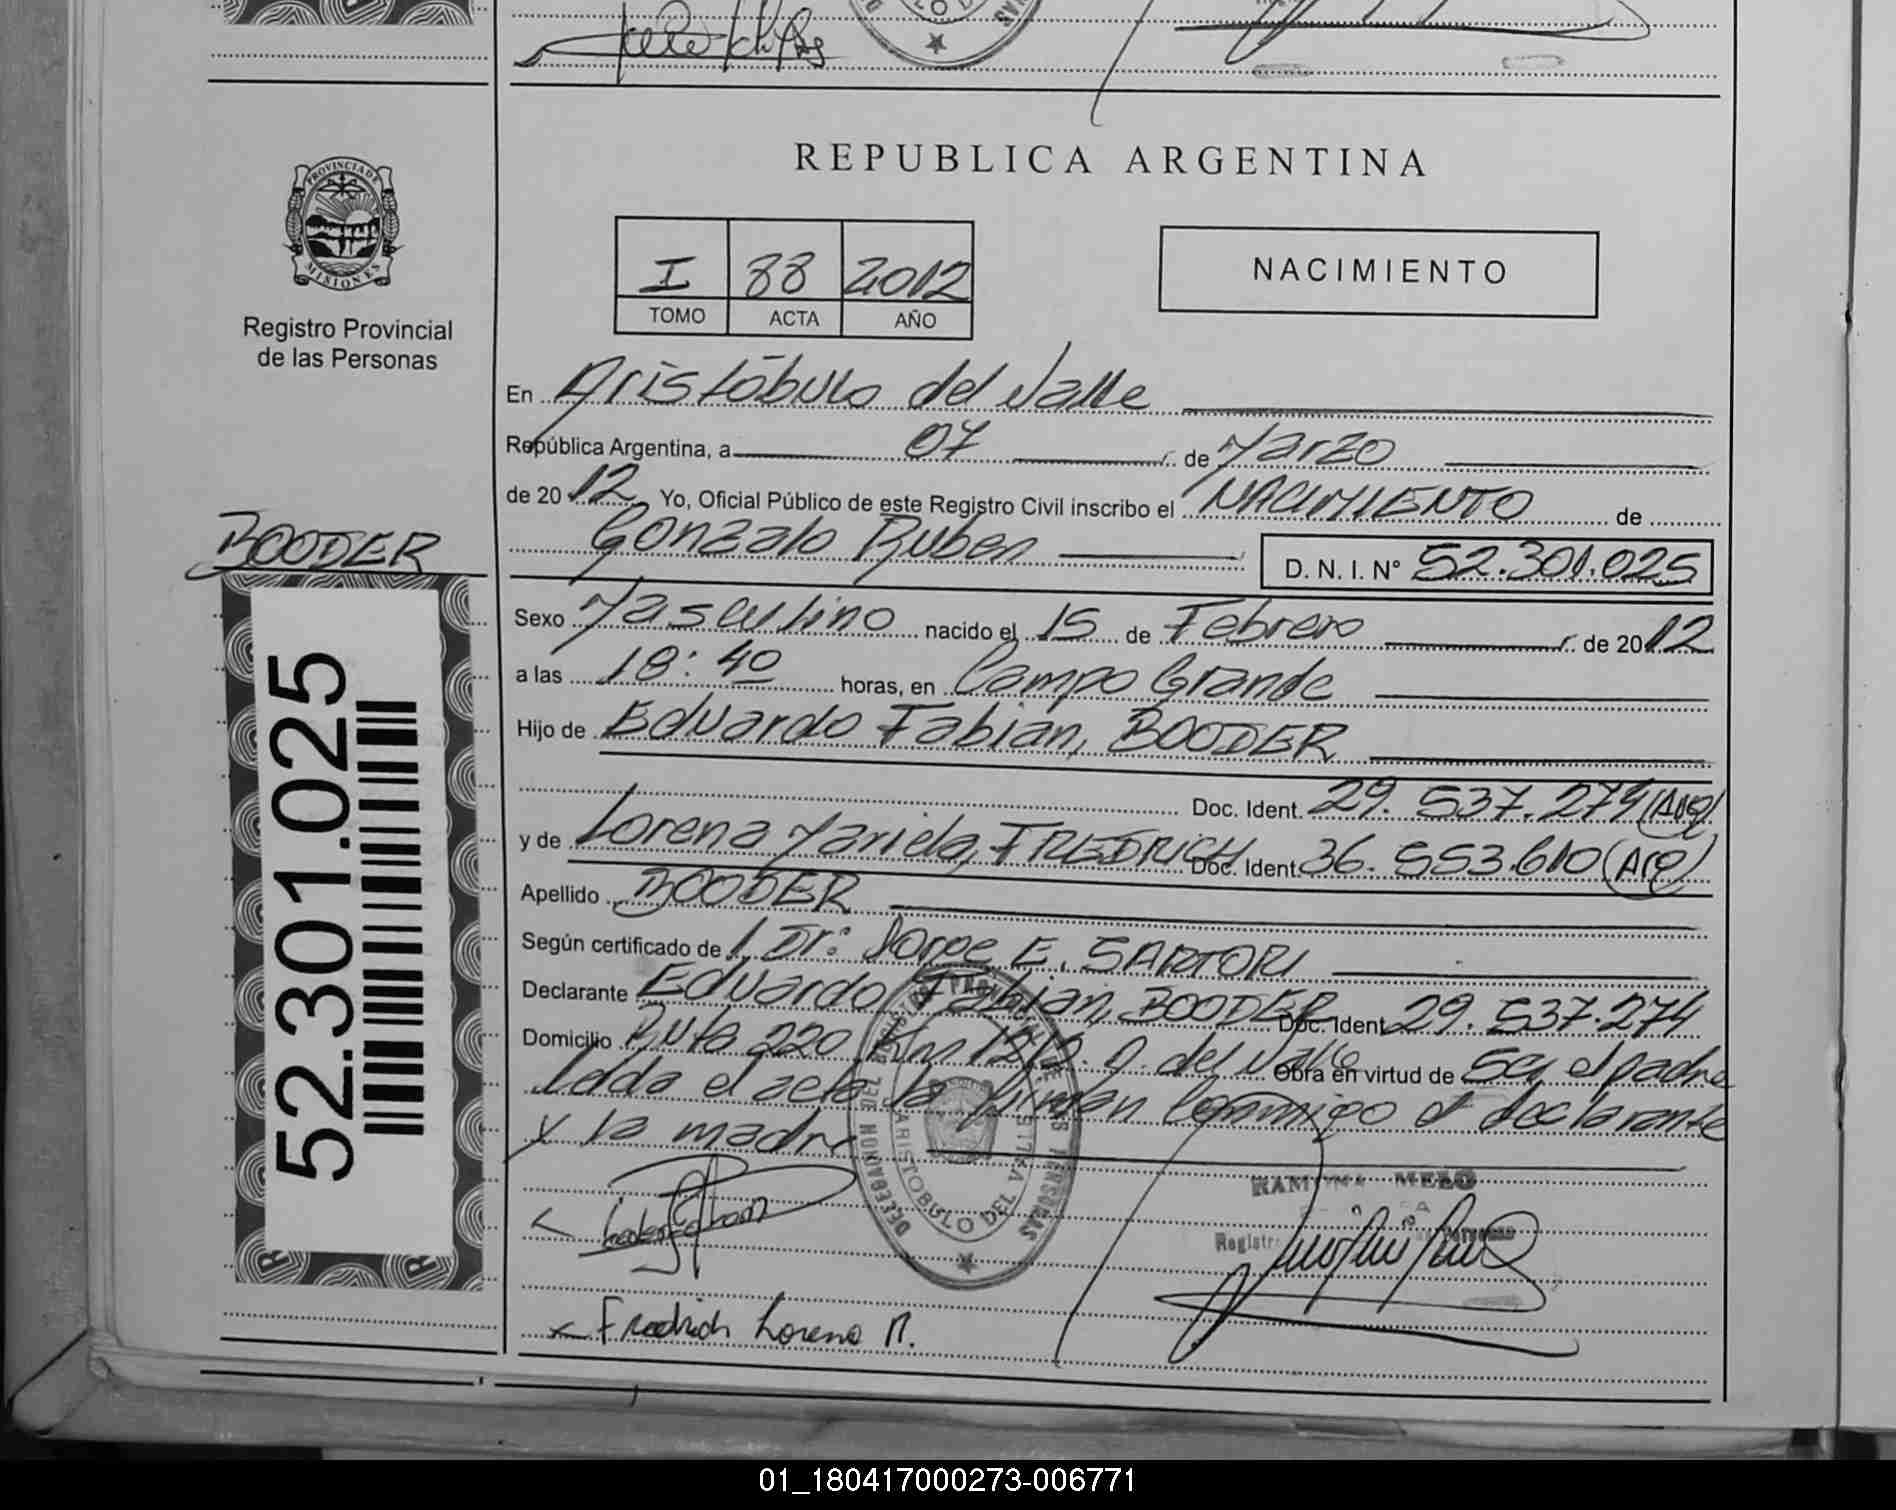 PROVINCIA DE
MISIONES
Registro Provincial
de las Personas
REPUBLICA ARGENTINA
I 88 2012
TOMO ACTA AÑO
NACIMIENTO
En Aristóbulo del Valle
República Argentina, a 07 de Marzo
de 2012 Yo, Oficial Público de este Registro Civil inscribo el NACIMIENTO de
Gonzalo Ruben D. N. I. N° 52.301.025
BOODER
52.301.025
Sexo Masculino nacido el 15 de Febrero de 2012
a las 18:40 horas, en Campo Grande
Hijo de Eduardo Fabian, BOODER
Doc. Ident. 29.537.274 (Arg)
y de Lorena Mariela, FREDRICH Doc. Ident. 36.553.610 (Arg)
Apellido BOODER
Según certificado de 1, Dr: Jorge E. SARTORI
Declarante Eduardo Fabian, BOODER Doc. Ident. 29.537.274
Domicilio Ruta 220 Km 12 A. del Valle Obra en virtud de Ser el padre
Leida el acta la firman Conmigo el declarante
y la madre
DELEGACION DEL REGISTRO PROVINCIAL DE LAS PERSONAS
ARISTOBULO DEL VALLE
MELO
Registr
Fredrich Lorena M.
01_180417000273-006771